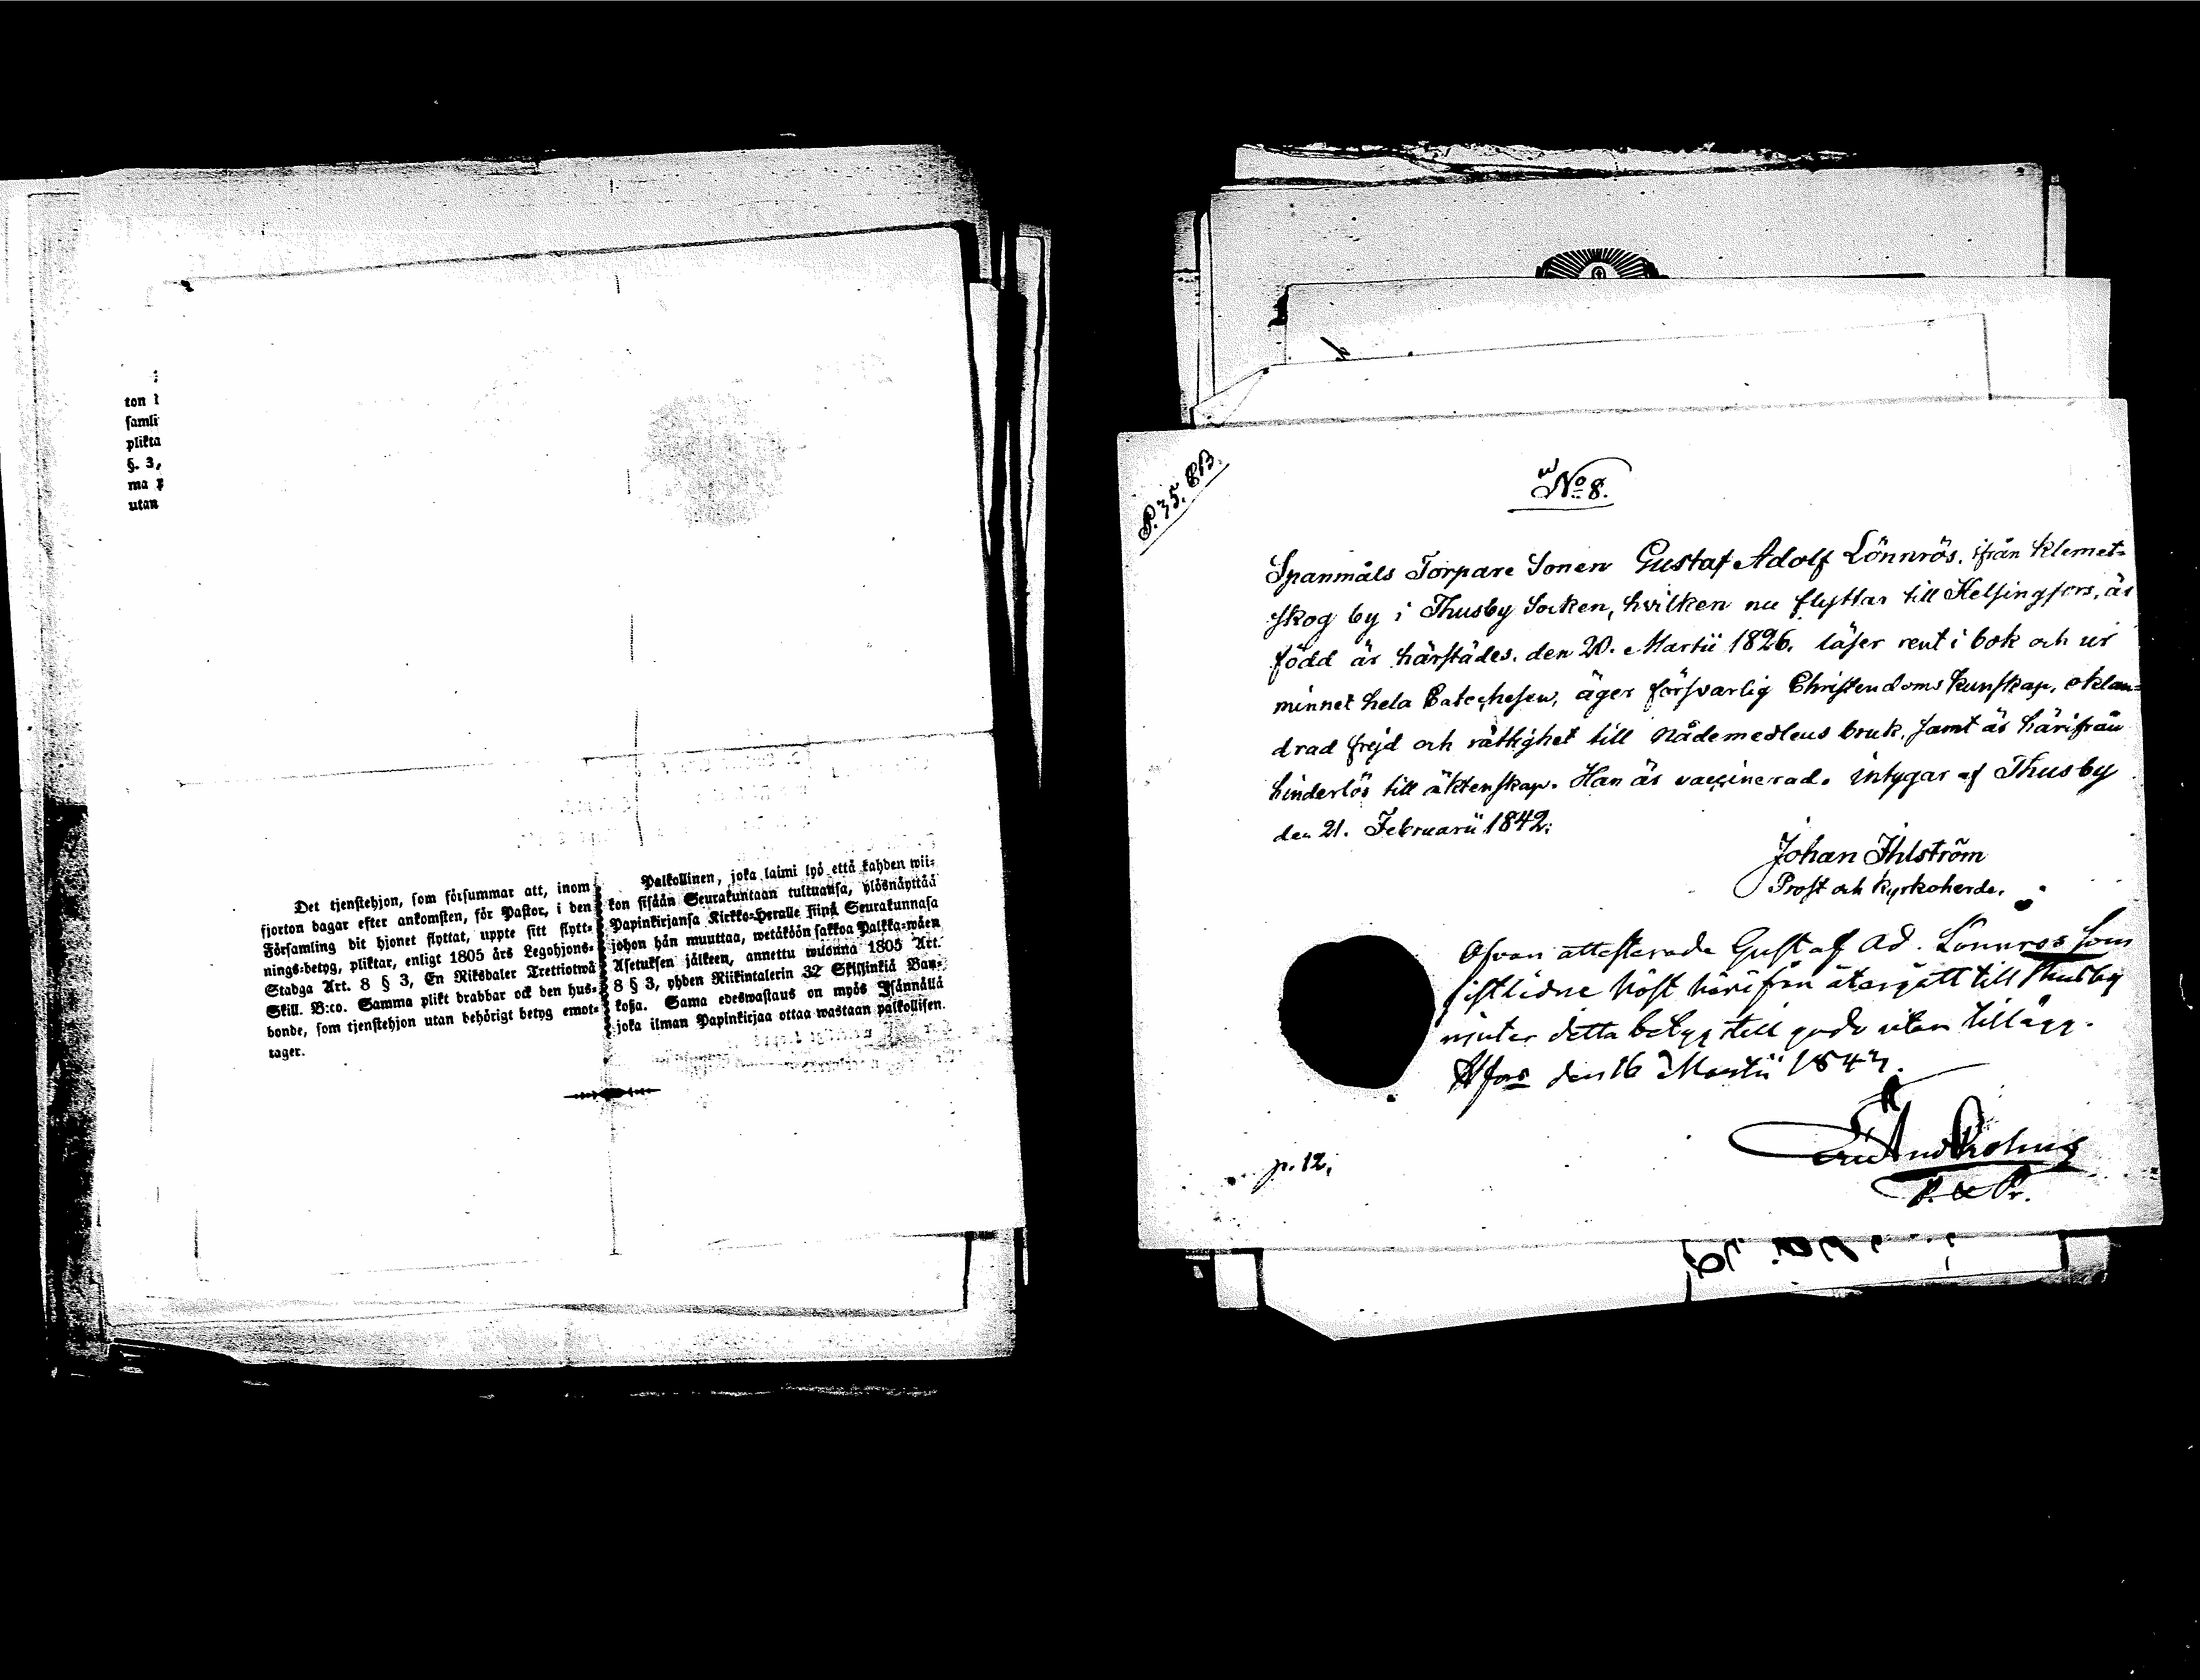 ton
samli
plikta
§. 3,
ma
utan
Det tjenstehjon, som försummar att, inom
fjorton dagar efter ankomsten, för Pastor, i den
Församling dit hjonet flyttat, uppte sitt flytt-
nings-betyg, pliktar, enligt 1805 års Legohjons-
Stadga Art. 8 § 3, En Riksdaler Trettiotwå
Skill. B:co. Samma plikt drabbar ock den hus-
bonde, som tjenstehjon utan behörigt betyg emot-
tager.
Palkollinen, joka laimi lyö että kahden wii-
kon sisään Seurakuntaan tultuansa, ylösnäyttää
Papinkirjansa Kirkko-Herralle siinä Seurakunnasa
johon hän muuttaa, wetäköön sakkoa Palkka-wäen
Asetuksen jälkeen, annettu wuonna 1805 Art.
8 § 3, yhden Riikintalerin 32 Skillinkiä Ban-
kosa. Sama edeswastaus on myös Isännällä
joka ilman Papinkirjaa ottaa wastaan palkollisen.
P. 35. BB.
No 8.
Spanmåls Torpare Sonen Gustaf Adolf Lönnrös, ifrån Klemet-
skog by i Thusby Socken, hvilken nu flyttar till Helsingfors, är
född är härstädes. den 20. Martii 1826. läser rent i bok och ur
minnet hela Catechesen, äger försvarlig Christendoms kunskap, oklan-
drad frejd och rättighet till Nådemedlens bruk, samt är härifrån
hinderlös till äktenskap. Han är vaccinerad. intygar af Thusby
den 21. Februarii 1842.
Johan Ihlström
Prost och Kyrkoherde.
Ofvan attesterade Gustaf Ad. Lönnros som
sistlidne höst härifrån återgått till Thusby
njuter detta betyg till godo utan tillägg.
Hfors den 16 Martii 1842.
P. & Pr.
p. 12.